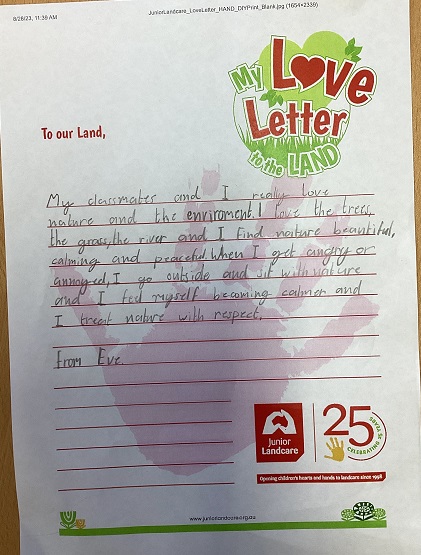 8/28/23, 11:39 AM
JuniorLandcare_LoveLetter_HAND_DIYPrint_Blank.jpg (1654×2339)
My Love
Letter
to the LAND
To our Land,
My classmates and I really love
nature and the enviroment. I love the trees,
the grass, the river and I find nature beautiful,
calming and peaceful. When I get angry or
annoyed, I go outside and sit with nature
and I feel myself becoming calmer and
I treat nature with respect.
From Eve.
Junior
Landcare
25
CELEBRATING 25 YEARS
Opening children's hearts and hands to landcare since 1998
www.juniorlandcare.org.au